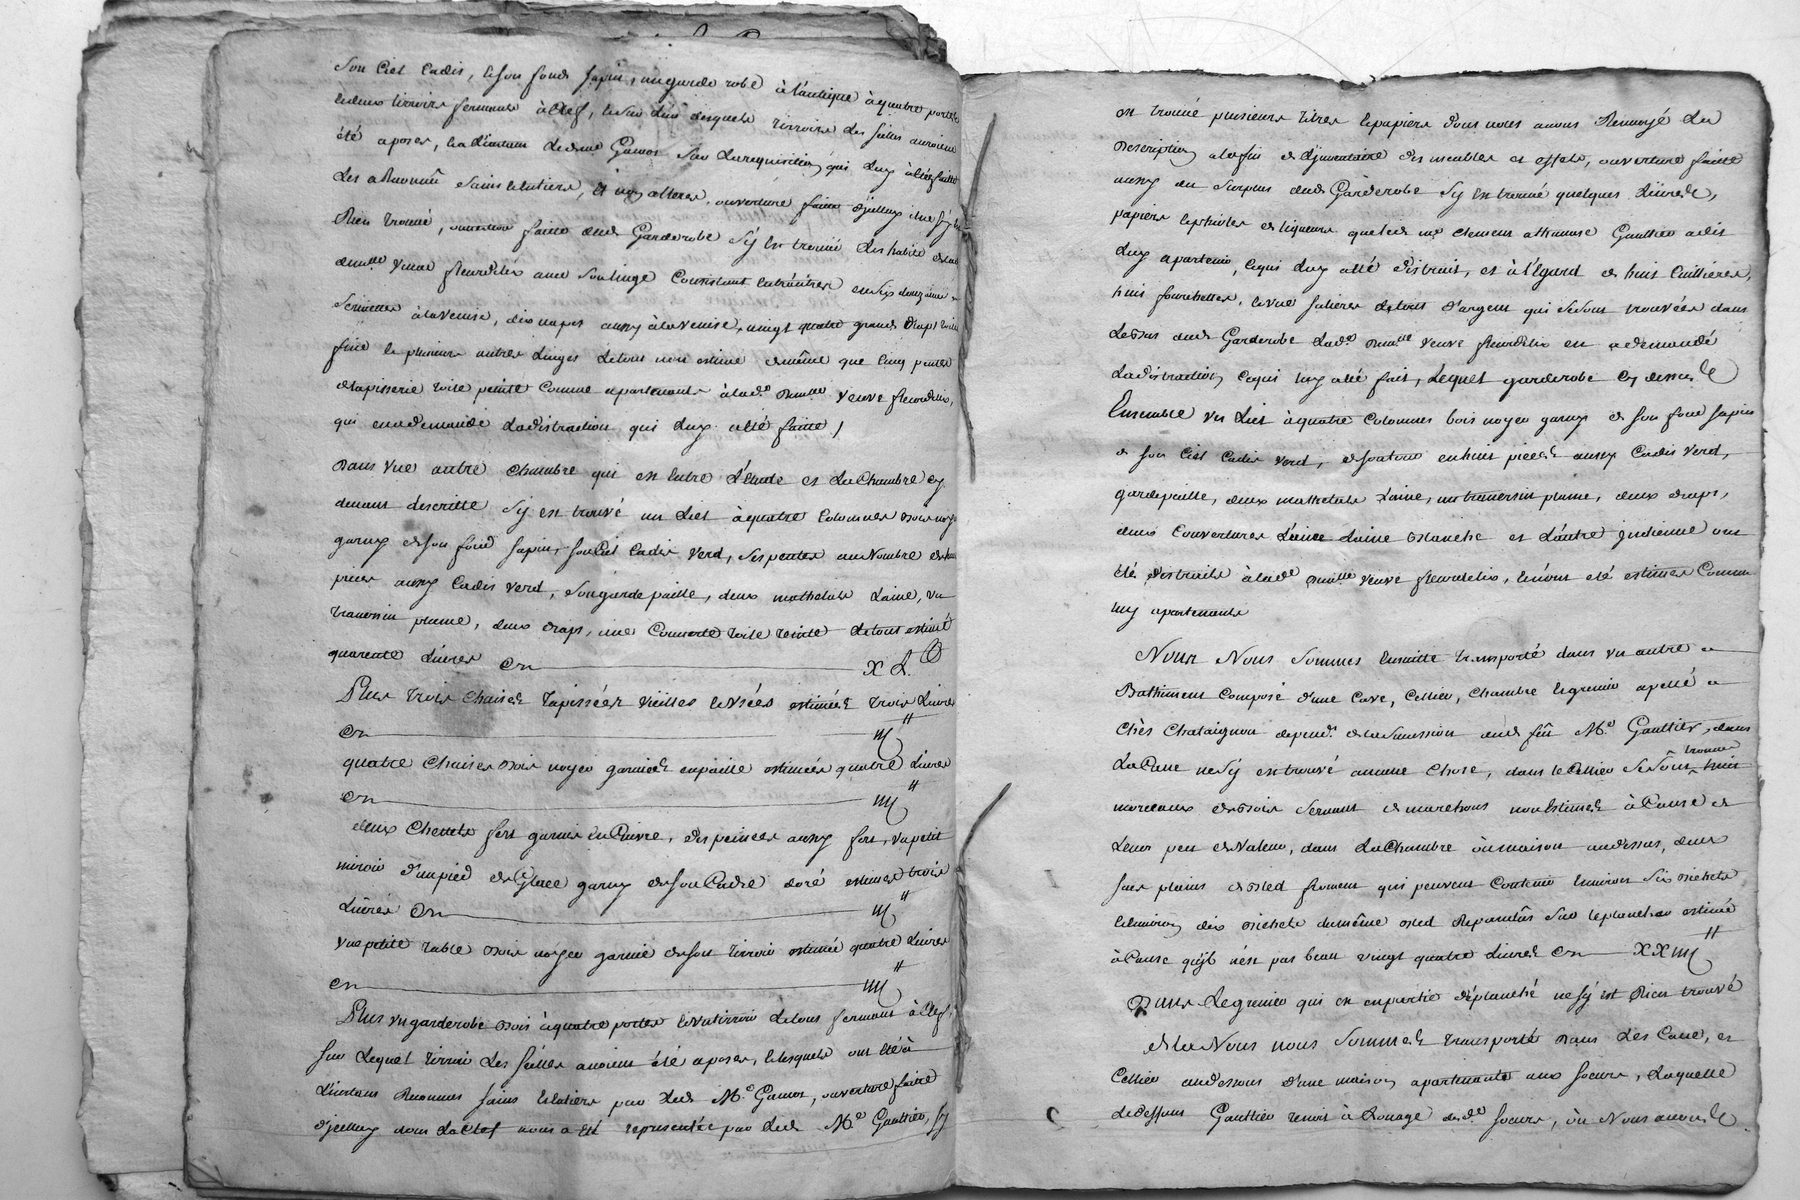 Son Ciel Cadis, le son fond sapin, un garde robe à l'antique à quatre portes
été aposés, à l'instant led. me Gamor sur la requisition qui luy a été faitte
les a Reconnû sains et entiers, et non alteres, ouverture faitte d'yeelluy il ne s'y est
Rien trouvé, ouverture faitte dud. Garderobe s'y est trouvé les habits de lad.
demlle veuve fleurdelix avec son linge Consistant
Serviettes à la venise, dix napes aussy à la venise, vingt quatre grands draps toile
fine et plusieurs autres Linges Le tout non estimé de même que cinq pentes
de tapisserie toile peinte comme apartenants à lad.e demlle veuve fleurdelix,
qui en a demandé la distraction qui luy a été faitte /
Dans une autre chambre qui est entre l'étude et la Chambre cy
devant descritte s'y est trouvé un Liet à quatre Colomnes bois noyer
garny de son fond sapin, son Ciel Cadis verd, ses pentes au Nombre de
pieces aussy Cadis verd, son garde paille, deux mathelats Laine, un
traversin plume, deux draps, une Couverte toile teinte Le tout estimé
quarente Livres Cy X L.
Plus trois Chaises tapissées vieilles et usées estimées trois Livres
Cy III "
quatre Chaises bois noyer garnies en paille estimées quatre Livres
Cy IIII "
deux Chenets fert garnis en Cuivre, des peincete aussy fert, un petit
miroir d'un pied de Glace garny de son Cadre doré estimés trois
Livres Cy III "
une petite table bois noyer garnie de son tirroir estimée quatre Livres
Cy IIII "
Plus un garderobe bois à quatre portes et un tirroir le tout fermant à Clef,
sur Lequel tirroir Les scellés avoient été aposés, lesquels ont été à
L'instant Reconnus sains et entiers par led. Me. Gamor, ouverture faite
d'yeelluy nous la Clef nous a été representée par led. Me Gauttier, s'y
est trouvé plusieurs titres et papiers dont nous avons Renvoyé la
Description à la fin de l'jnventaire des meubles et effets, ouverture faitte
aussy du surplus dud. Garderobe s'y est trouvé quelques Livres,
papiers et liqueurs que led. me Clement Athanase Gauttier a dit
luy apartenir, ce qui luy a été distrait, et à l'Egard de huit Cuillieres,
huit fourchettes, et une salieres le tout d'argent qui se sont trouvées dans
Le bas dud. Garderobe lad.e demlle veuve fleurdelix en a demandé
La distraction ce qui luy a été fait, Lequel garderobe cy dessus
Ensemble un Liet à quatre Colomnes bois noyer garny de son fond sapin
de son Ciel Cadis verd, en huit pieces aussy Cadis verd,
gardepaille, deux mathelats Laine, un traversin plume, deux draps,
deux Couvertures Laine blanche et l'autre jndienne ont
été distraits à lad.e demlle veuve fleurdelix, et n'ont été estimés Comme
luy apartenants
Nous Nous sommes Ensuitte transporté dans un autre
Bathiment composé d'une Cave, Cellier, Chambre et grenier apellé
Chès Chataignon depend. de la succession dud. fût Me. Gauttier, dans
La Cave ne s'y est trouvé aucune Chose, dans le Cellier se sont trouvés huit
morceaux de bois servant de marchons non Estimés à Cause de
Leur peu de valeur, dans La Chambre ou maison au dessus, deux
sacs plains de bled froment qui peuvent Contenir Environ six bichets
et Environ dix bichets du même bled Repandûs sur le plancher estimé
à Cause qu'il n'est pas beau vingt quatre Livres Cy XXIIII "
Dans Le grenier qui est en partie déplanché ne s'y est Rien trouvé
De là Nous nous sommes transporté Dans Les Cave, et
Cellier au dessous d'une maison apartenante aux soeurs, Laquelle
le deffunt Gauttier tenoit à Louage desd.e soeurs, où Nous avons